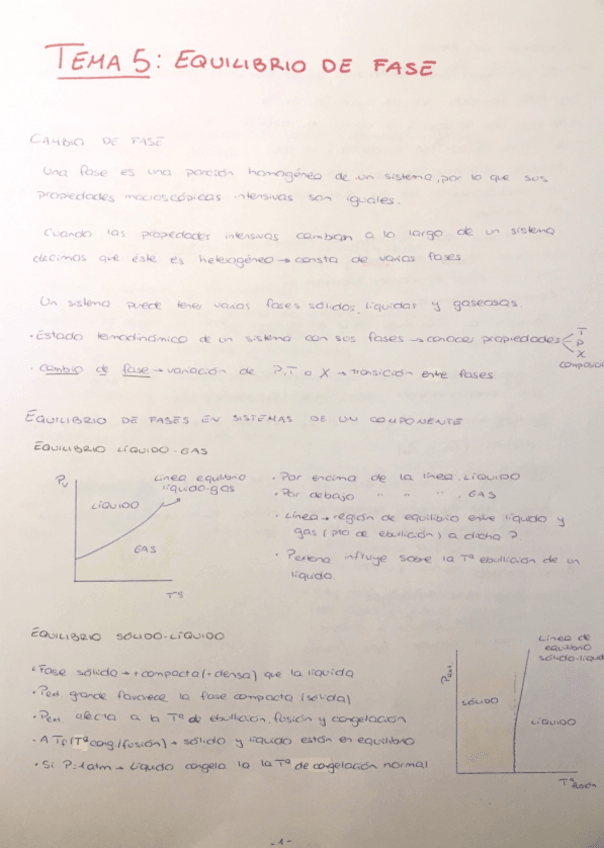 TEMA 5: EQUILIBRIO DE FASE
CAMBIO DE FASE
Una fase es una porción homogénea de un sistema, por lo que sus
propiedades macroscópicas intensivas son iguales.
Cuando las propiedades intensivas cambian a lo largo de un sistema
decimos que éste es heterogéneo → consta de varias fases.
Un sistema puede tener varias fases sólidas, líquidas y gaseosas.
• Estado termodinámico de un sistema con sus fases → conocer propiedades
T
P
X
composición
• Cambio de fase → variación de P, T o X → transición entre fases.
EQUILIBRIO DE FASES EN SISTEMAS DE UN COMPONENTE
EQUILIBRIO LÍQUIDO-GAS
Pv
Línea equilibrio
líquido-gas
LÍQUIDO
GAS
Tª
• Por encima de la línea, LÍQUIDO
• Por debajo " " ", GAS
• Línea → región de equilibrio entre líquido y
gas (pto de ebullición) a dicha P.
• Pexterna influye sobre la Tª ebullición de un
líquido.
EQUILIBRIO SÓLIDO-LÍQUIDO
• Fase sólida → + compacta (+ densa) que la líquida
• Pext. grande favorece la fase compacta (sólida)
• Pext. afecta a la Tª de ebullición, fusión y congelación
• A Tf (Tª cong./fusión) → sólido y líquido están en equilibrio
• Si P=1 atm → Líquido congela a la Tª de congelación normal
Línea de
equilibrio
sólido-líquido
Pext.
SÓLIDO
LÍQUIDO
Tª fusión
-1-